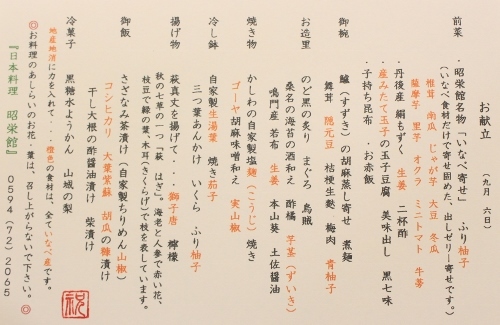 お献立　（九月　六日）
前菜　・昭栄館名物「いなべ寄せ」　ふり柚子
（いなべ食材だけで寄せ固めた、出しゼリー寄せです。）
椎茸　南瓜　じゃが芋　大豆　冬瓜
薩摩芋　里芋　オクラ　ミニトマト　牛蒡
・丹後産　絹もずく　生姜　二杯酢
・産みたて玉子の玉子豆腐　美味出し　黒七味
・子持ち昆布　・お赤飯
御椀　鱸（すずき）の胡麻蒸し寄せ　煮麺
舞茸　隠元豆　桔梗生麩　梅肉　青柚子
お造里　のど黒の炙り　まぐろ　烏賊
桑名の海苔の酒和え　酢橘　芋茎（ずいき）
鳴門産　若布　生姜　本山葵　土佐醤油
焼き物　かしわの自家製塩麹（こうじ）焼き
ゴーヤ胡麻味噌和え　実山椒
冷し鉢　自家製生湯葉　焼き茄子
三つ葉あんかけ　いくら　ふり柚子
揚げ物　萩真丈を揚げて・・　獅子唐　檸檬
秋の七草の一つ「萩　はぎ」。海老と人参で赤い花、
枝豆で緑の葉、木耳（きくらげ）で枝を表しています。
御飯　さざなみ茶漬け（自家製ちりめん山椒）
コシヒカリ　大葉紫蘇　胡瓜の糠漬け
干し大根の酢醤油漬け　柴漬け
冷菓子　黒糖水ようかん　山城の梨
地産地消に力を入れて・・・橙色の食材は、全ていなべ産です。
◎お料理のあしらいのお花・葉は、召し上がらないで下さい。◎
『日本料理　昭栄館』　０５９４（７２）２０６５
祝